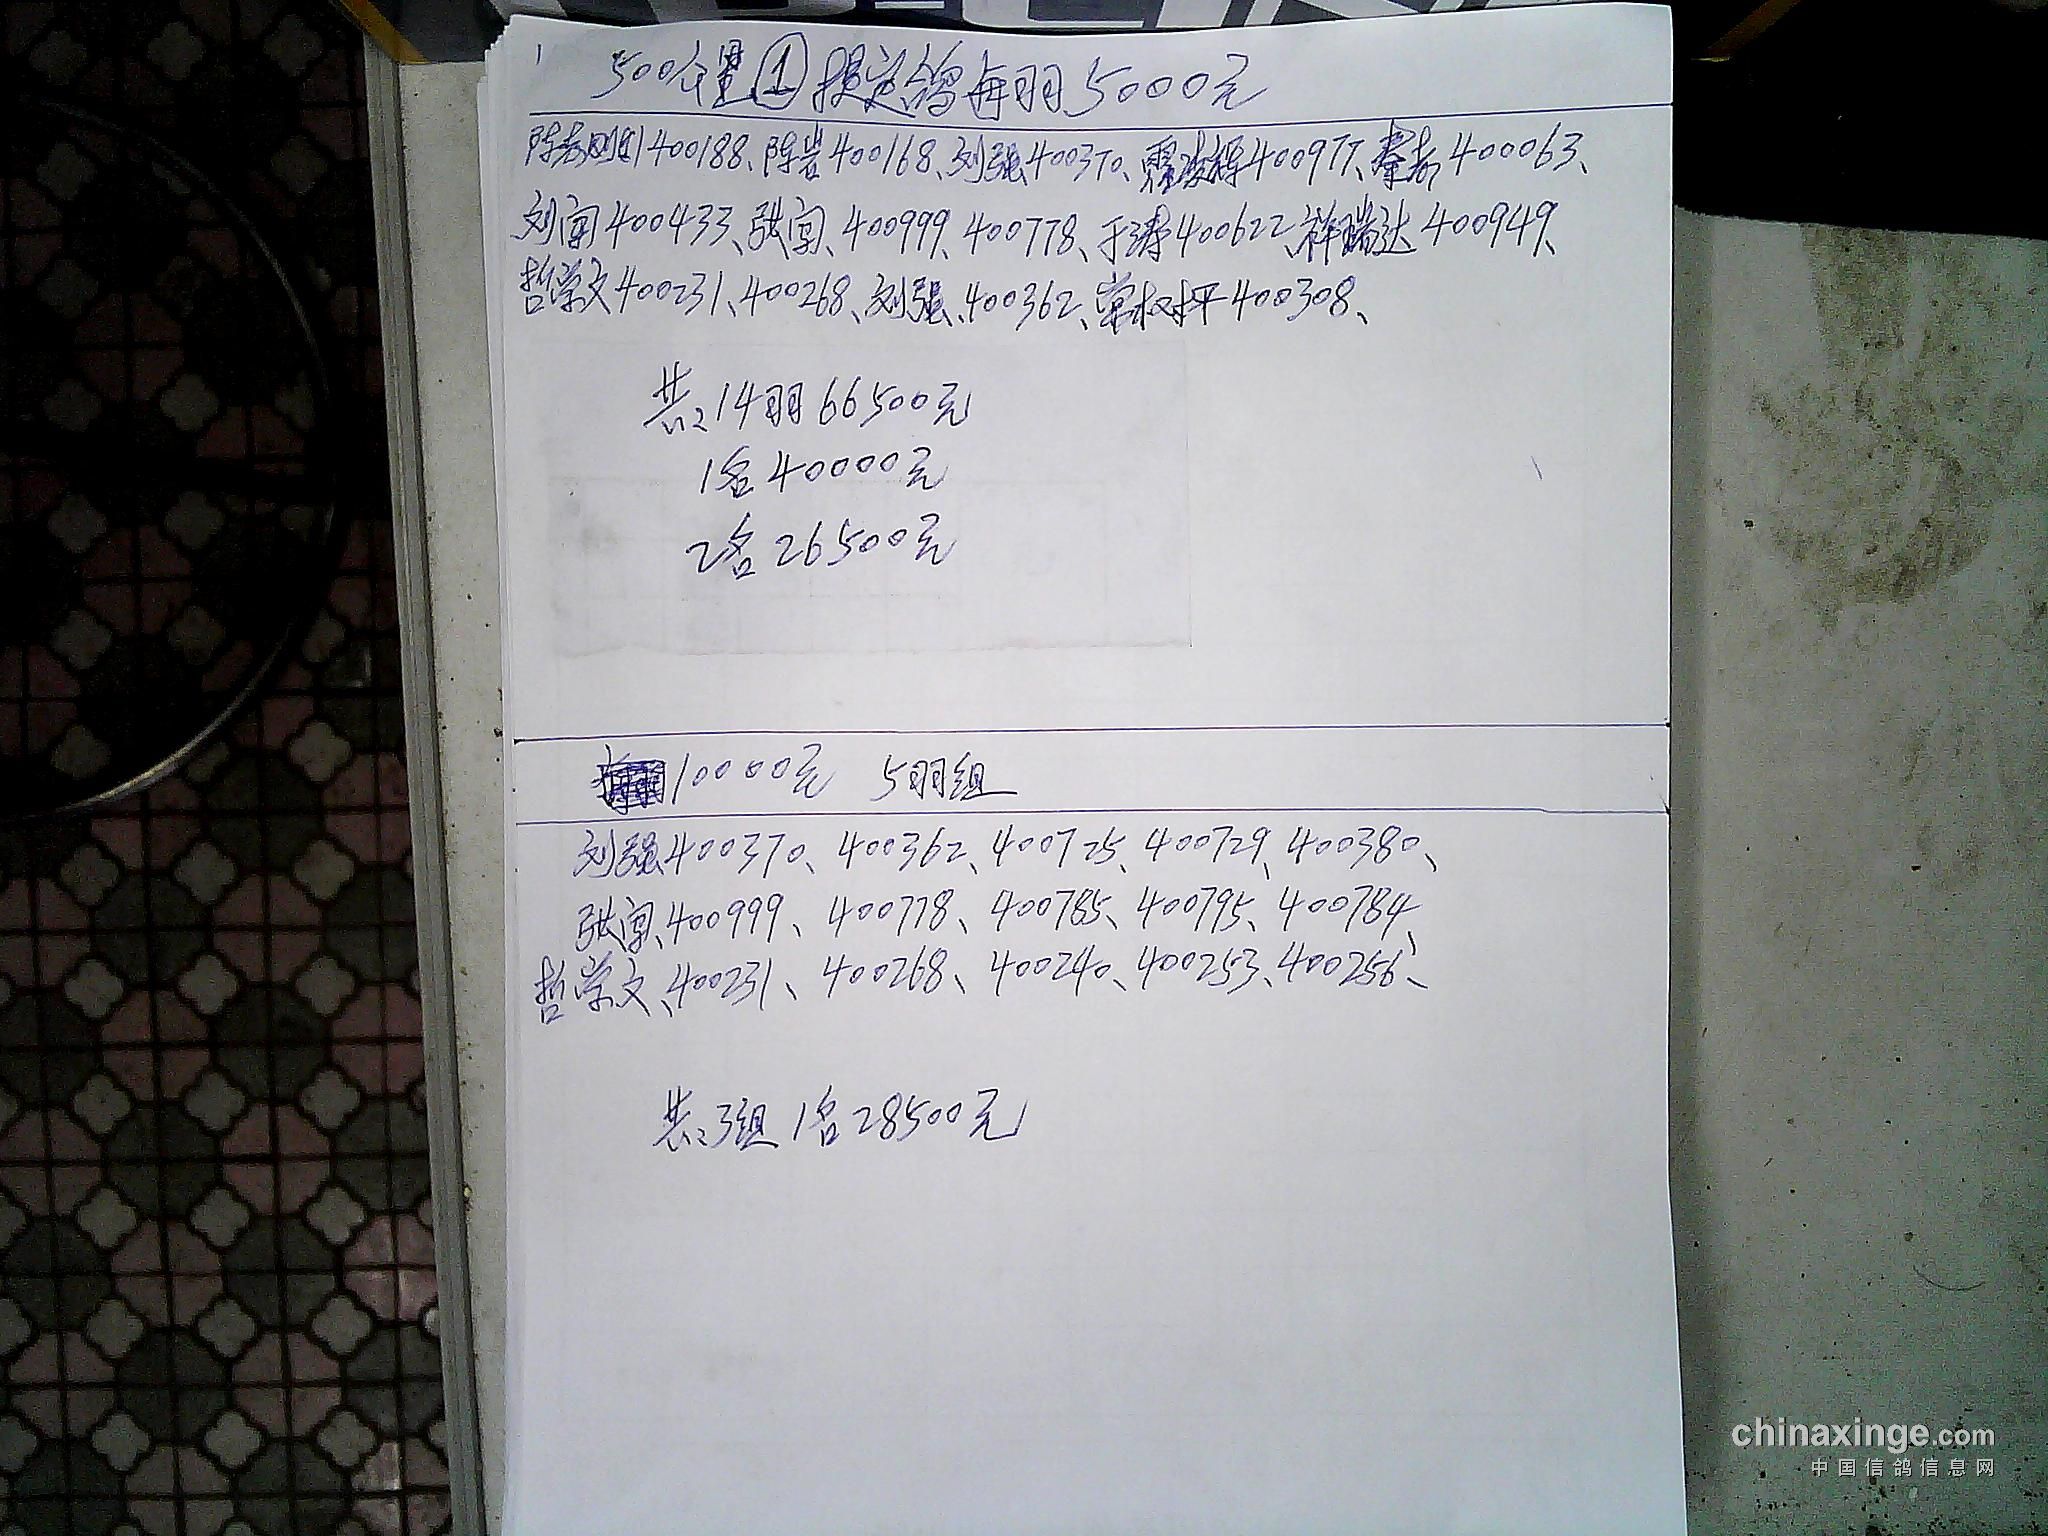 500公里①指定鸽每羽5000元
400188、陈岩400168、刘强400370、霍凌辉400977、秦 400063、
刘闯400433、张闯、400999、400778、于涛400622、祥瑞达400949、
哲学文400231、400268、刘强、400362、常权坪400308、
共:14羽66500元
1名40000元
2名26500元
10000元 5羽组
刘强400370、400362、400725、400729、400380、
张闯、400999、400778、400785、400795、400784、
哲学文、400231、400268、400240、400253、400256、
共:3组 1名28500元
chinaxinge.com
中国信鸽信息网